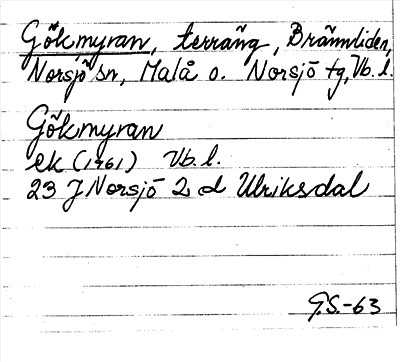 Gökmyran, terräng, Brännliden,
Norsjö sn, Malå o. Norsjö tg, Vb. l.
Gökmyran
ek (1961) Vb. l.
23 J Norsjö 2 d Ulriksdal
G.S.-63